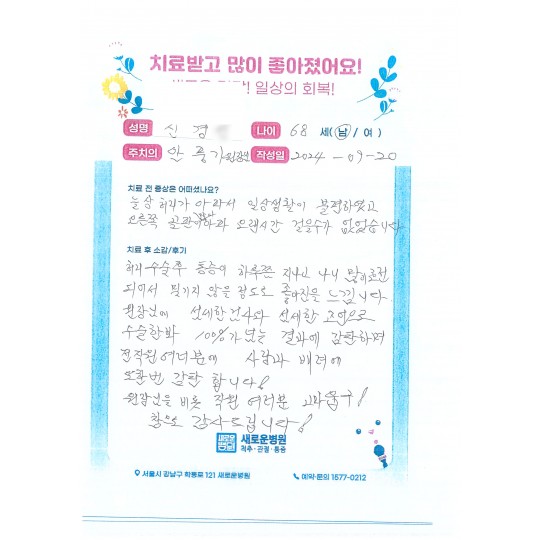 치료받고 많이 좋아졌어요!
일상의 회복!
성명 신 경 나이 68 세(남/여)
주치의 안풍기원장님 작성일 2024-09-20
치료 전 증상은 어떠셨나요?
늘상 허리가 아파서 일상생활이 불편하였고
오른쪽 골반 오랜시간 걸을수가 없었습니다
치료 후 소감/후기
허리 수술후 통증이 하루쯤 지나고 나니
되어서 믿기지 않을 정도로 좋아진을 느낍니다
원장님에 섬세한 검사와 섬세한 조언으로
수술한바 100%가 넘는 결과에 감탄하며
전직원 여러분에 사랑과 배려에
또한번 감탄 합니다!
원장님을 비롯 직원 여러분 고마움구!
참으로 감사드립니다!
새로운병원
척추·관절·통증
서울시 강남구 학동로 121 새로운병원
예약·문의 1577-0212